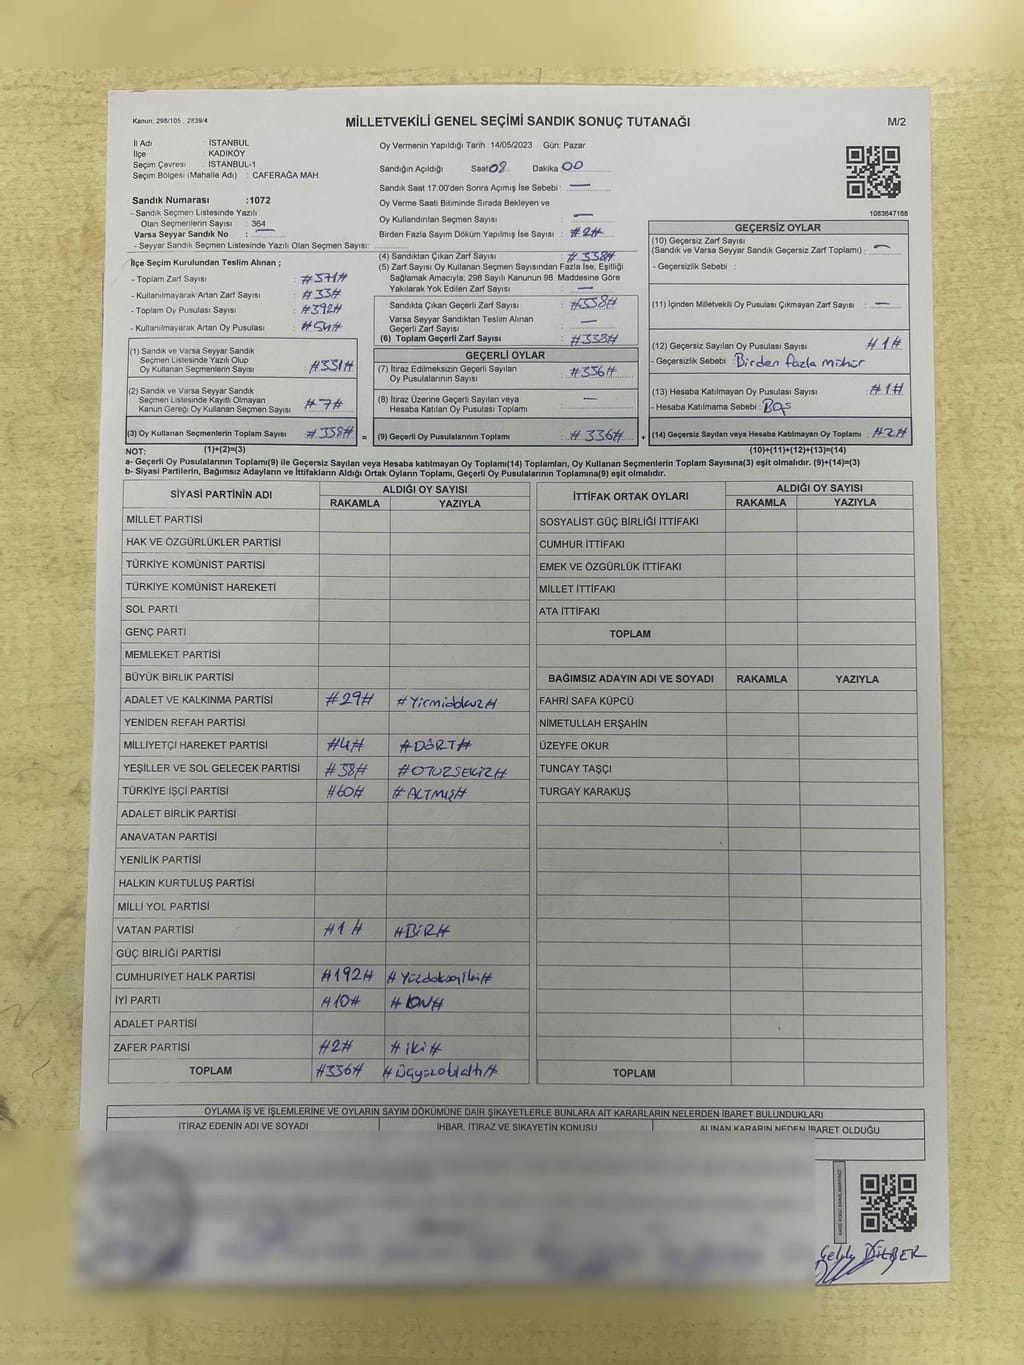 Kanun; 298/105 , 2839/4
MİLLETVEKİLİ GENEL SEÇİMİ SANDIK SONUÇ TUTANAĞI
M/2
İl Adı : İSTANBUL
İlçe : KADIKÖY
Seçim Çevresi : İSTANBUL-1
Seçim Bölgesi (Mahalle Adı) : CAFERAĞA MAH.
Sandık Numarası :1072
- Sandık Seçmen Listesinde Yazılı
Olan Seçmenlerin Sayısı : 364
Varsa Seyyar Sandık No : —
- Seyyar Sandık Seçmen Listesinde Yazılı Olan Seçmen Sayısı:
Oy Vermenin Yapıldığı Tarih :14/05/2023 Gün: Pazar
Sandığın Açıldığı Saat 08 Dakika 00
Sandık Saat 17:00'den Sonra Açımış İse Sebebi : —
Oy Verme Saati Bitiminde Sırada Bekleyen ve
Oy Kullandırılan Seçmen Sayısı : —
Birden Fazla Sayım Döküm Yapılmış İse Sayısı : #2#
1083647168
İlçe Seçim Kurulundan Teslim Alınan ;
- Toplam Zarf Sayısı : #371#
- Kullanılmayarak Artan Zarf Sayısı : #33#
- Toplam Oy Pusulası Sayısı : #392#
- Kullanılmayarak Artan Oy Pusulası : #54#
(1) Sandık ve Varsa Seyyar Sandık
Seçmen Listesinde Yazılı Olup
Oy Kullanan Seçmenlerin Sayısı : #331#
(2) Sandık ve Varsa Seyyar Sandık
Seçmen Listesinde Kayıtlı Olmayan
Kanun Gereği Oy Kullanan Seçmen Sayısı : #7#
(3) Oy Kullanan Seçmenlerin Toplam Sayısı : #338# =
(4) Sandıktan Çıkan Zarf Sayısı : #338#
(5) Zarf Sayısı Oy Kullanan Seçmen Sayısından Fazla İse, Eşitliği
Sağlamak Amacıyla; 298 Sayılı Kanunun 98. Maddesine Göre
Yakılarak Yok Edilen Zarf Sayısı : —
Sandıkta Çıkan Geçerli Zarf Sayısı : #338#
Varsa Seyyar Sandıktan Teslim Alınan
Geçerli Zarf Sayısı : —
(6) Toplam Geçerli Zarf Sayısı : #338#
GEÇERLİ OYLAR
(7) İtiraz Edilmeksizin Geçerli Sayılan
Oy Pusulalarının Sayısı : #336#
(8) İtiraz Üzerine Geçerli Sayılan veya
Hesaba Katılan Oy Pusulası Toplamı : —
(9) Geçerli Oy Pusulalarının Toplamı : #336# +
GEÇERSİZ OYLAR
(10) Geçersiz Zarf Sayısı
(Sandık ve Varsa Seyyar Sandık Geçersiz Zarf Toplamı) : —
- Geçersizlik Sebebi :
(11) İçinden Milletvekili Oy Pusulası Çıkmayan Zarf Sayısı : —
(12) Geçersiz Sayılan Oy Pusulası Sayısı : #1#
- Geçersizlik Sebebi : Birden fazla mühür
(13) Hesaba Katılmayan Oy Pusulası Sayısı : #1#
- Hesaba Katılmama Sebebi : Boş
(14) Geçersiz Sayılan veya Hesaba Katılmayan Oy Toplamı : #2#
NOT: (1)+(2)=(3) (10)+(11)+(12)+(13)=(14)
a- Geçerli Oy Pusulalarının Toplamı(9) ile Geçersiz Sayılan veya Hesaba katılmayan Oy Toplamı(14) Toplamları, Oy Kullanan Seçmenlerin Toplam Sayısına(3) eşit olmalıdır. (9)+(14)=(3)
b- Siyasi Partilerin, Bağımsız Adayların ve İttifakların Aldığı Ortak Oyların Toplamı, Geçerli Oy Pusulalarının Toplamına(9) eşit olmalıdır.
SİYASİ PARTİNİN ADI ALDIĞI OY SAYISI
RAKAMLA YAZIYLA
MİLLET PARTİSİ
HAK VE ÖZGÜRLÜKLER PARTİSİ
TÜRKİYE KOMÜNİST PARTİSİ
TÜRKİYE KOMÜNİST HAREKETİ
SOL PARTİ
GENÇ PARTİ
MEMLEKET PARTİSİ
BÜYÜK BİRLİK PARTİSİ
ADALET VE KALKINMA PARTİSİ #29# #Yirmidokuz#
YENİDEN REFAH PARTİSİ
MİLLİYETÇİ HAREKET PARTİSİ #4# #DÖRT#
YEŞİLLER VE SOL GELECEK PARTİSİ #38# #OTUZSEKİZ#
TÜRKİYE İŞÇİ PARTİSİ #60# #ALTMIŞ#
ADALET BİRLİK PARTİSİ
ANAVATAN PARTİSİ
YENİLİK PARTİSİ
HALKIN KURTULUŞ PARTİSİ
MİLLİ YOL PARTİSİ
VATAN PARTİSİ #1# #BİR#
GÜÇ BİRLİĞİ PARTİSİ
CUMHURİYET HALK PARTİSİ #192# #Yüzdoksaniki#
İYİ PARTİ #10# #ON#
ADALET PARTİSİ
ZAFER PARTİSİ #2# #iki#
TOPLAM #336# #Üçyüzotuzaltı#
İTTİFAK ORTAK OYLARI ALDIĞI OY SAYISI
RAKAMLA YAZIYLA
SOSYALİST GÜÇ BİRLİĞİ İTTİFAKI
CUMHUR İTTİFAKI
EMEK VE ÖZGÜRLÜK İTTİFAKI
MİLLET İTTİFAKI
ATA İTTİFAKI
TOPLAM
BAĞIMSIZ ADAYIN ADI VE SOYADI RAKAMLA YAZIYLA
FAHRİ SAFA KÜPCÜ
NİMETULLAH ERŞAHİN
ÜZEYFE OKUR
TUNCAY TAŞÇI
TURGAY KARAKUŞ
TOPLAM
OYLAMA İŞ VE İŞLEMLERİNE VE OYLARIN SAYIM DÖKÜMÜNE DAİR ŞİKAYETLERLE BUNLARA AİT KARARLARIN NELERDEN İBARET BULUNDUKLARI
İTİRAZ EDENİN ADI VE SOYADI İHBAR, İTİRAZ VE ŞİKAYETİN KONUSU ALINAN KARARIN NEDEN İBARET OLDUĞU
DİLBER